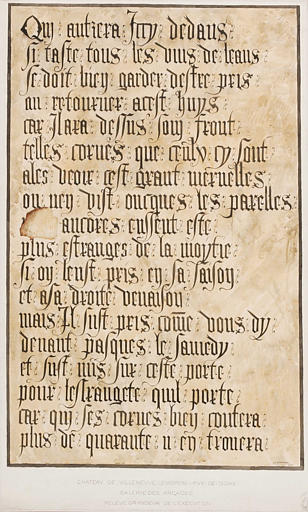 Qui antrera Icy dedans
si taste tous les vins de leans
se doit bien garder destre pris
au retourner a cest huys
car Il ara dessus son front
telles cornes que ceulx cy sont
ales veoir cest grant merveilles
on nen vist oncques les parelles
ancores eussent este
plus estranges de la moytie
si on leust pris en sa saison
et a sa droite venaison
mais Il fust pris come vous dy
devant pasques le samedy
et fust mis sur ceste porte
pour lestrangete quil porte
car qui ses cornes bien contera
plus de quarante n en trouera
CHATEAU DE VILLENEUVE LEMBRON PUY DE DOME
GALERIE DES ARCADES
RELEVE GRANDEUR DE L'EXECUTION